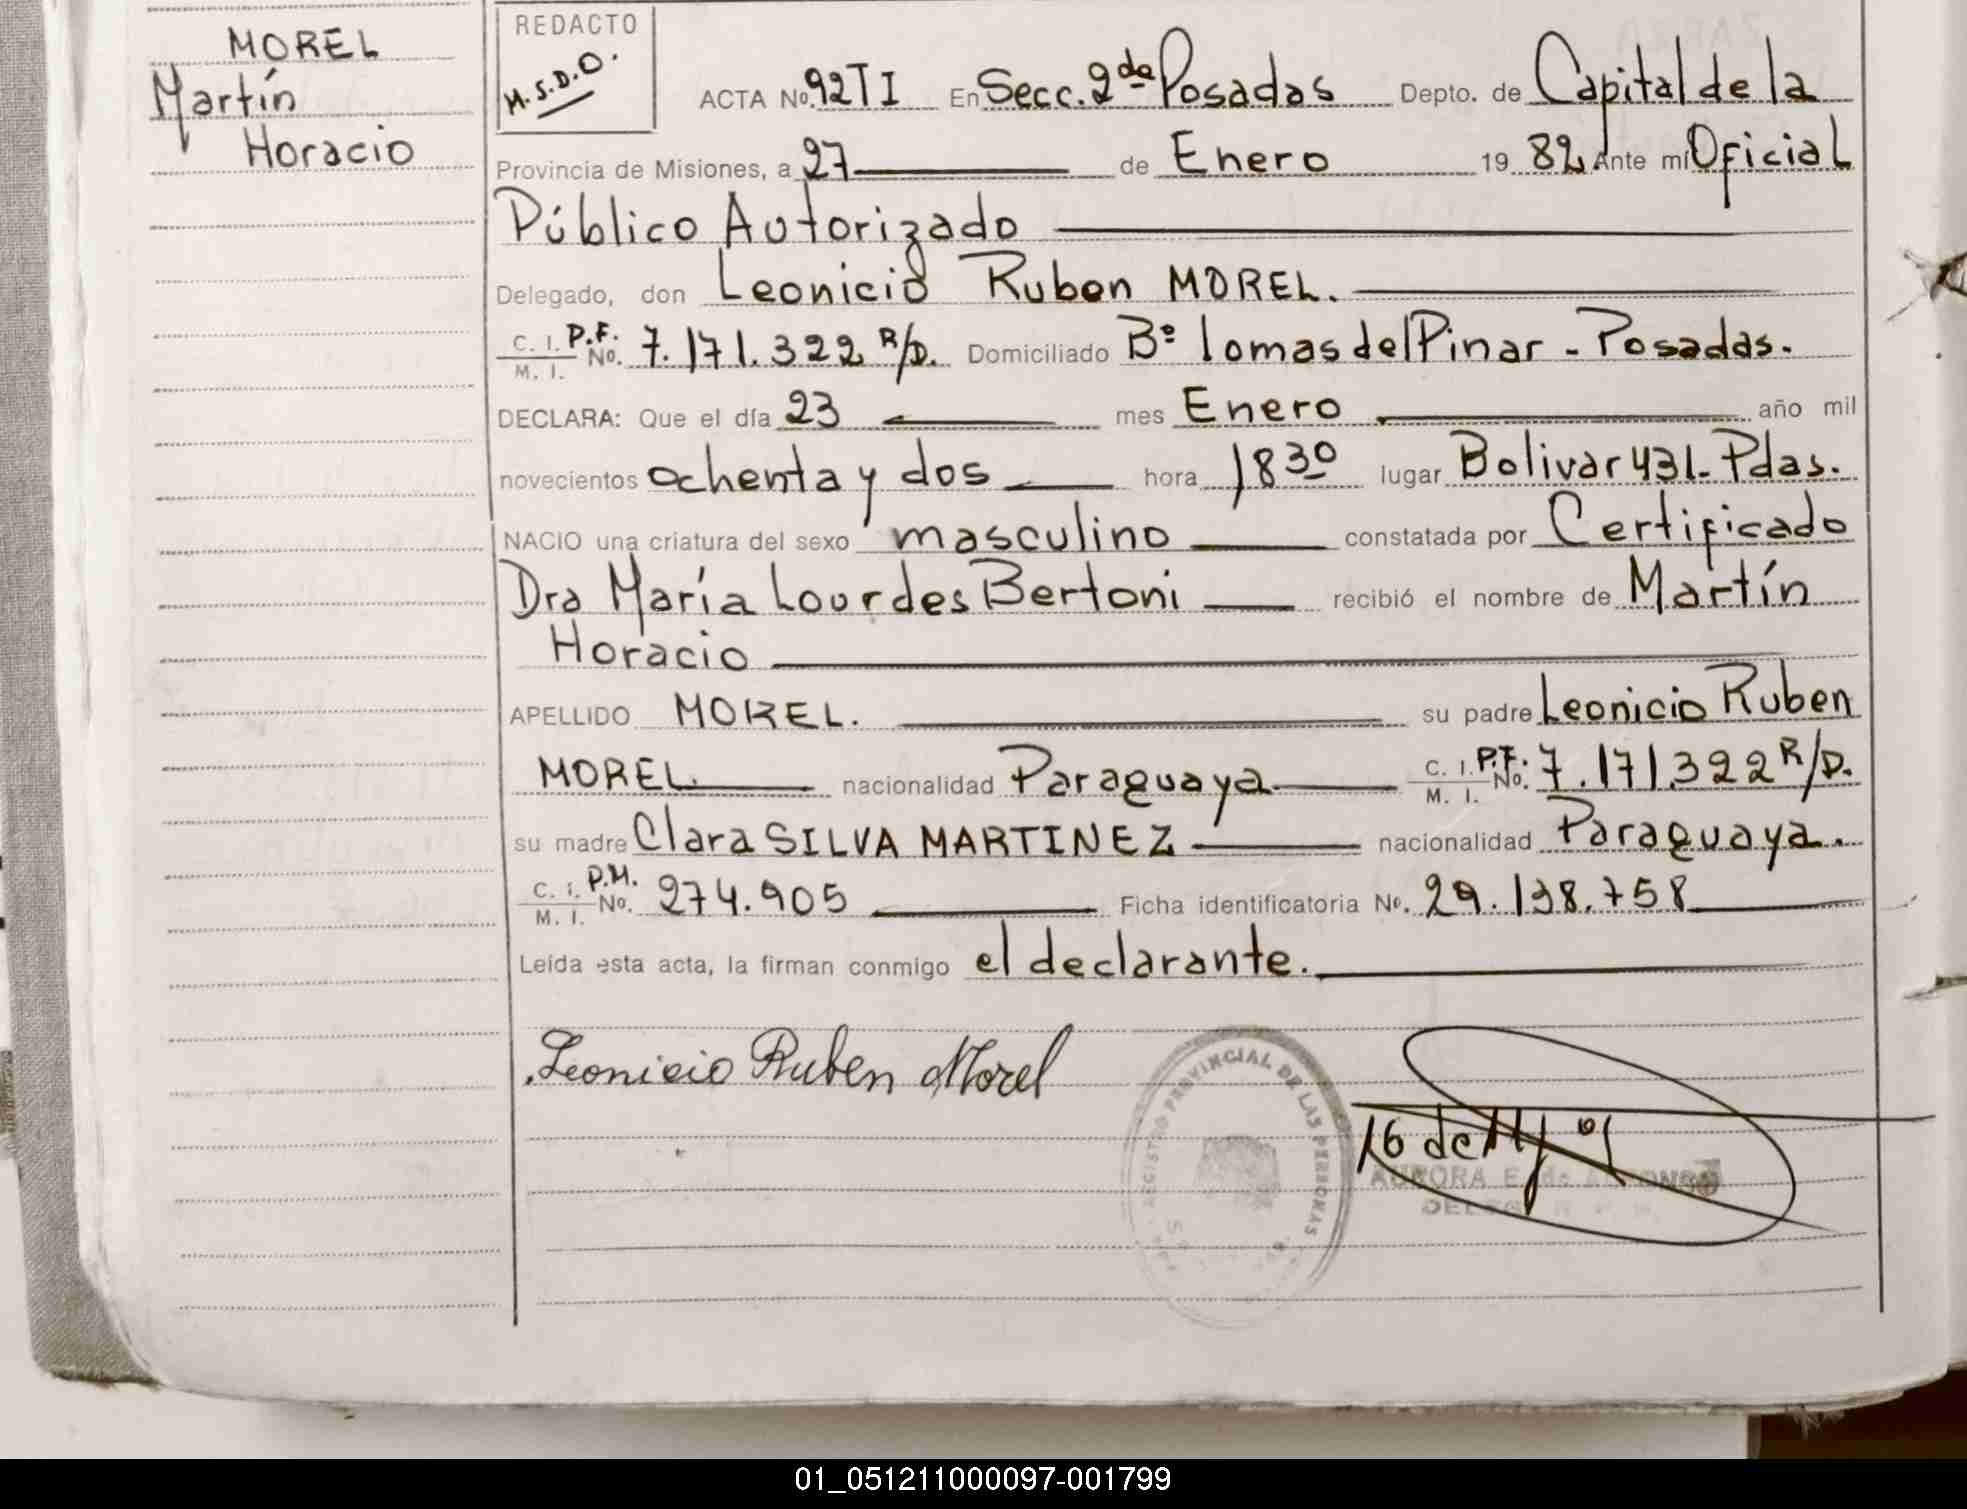 MOREL
Martín
Horacio
REDACTO
M.S.D.O.
ACTA No. 92TI En Secc. 2da Posadas Depto. de Capital de la
Provincia de Misiones, a 27 de Enero 19 82 Ante mí Oficial
Público Autorizado
Delegado, don Leonicio Ruben MOREL.
C. I. P.F. M. I. No. 7.171.322 R/D. Domiciliado Bº Lomas del Pinar - Posadas.
DECLARA: Que el día 23 mes Enero año mil
novecientos ochenta y dos hora 18 30 lugar Bolivar 431 - Pdas.
NACIO una criatura del sexo masculino constatada por Certificado
Dra María Lourdes Bertoni recibió el nombre de Martín
Horacio
APELLIDO MOREL. su padre Leonicio Ruben
MOREL nacionalidad Paraguaya C. I. P.F. M. I. No. 7.171.322 R/D.
su madre Clara SILVA MARTINEZ nacionalidad Paraguaya.
C. I. P.M. M. I. No. 274.905 Ficha identificatoria No. 29.138.758
Leída esta acta, la firman conmigo el declarante.
Leonicio Ruben Morel
REGISTRO PROVINCIAL DE LAS PERSONAS
16 de
AURORA E. de
01_051211000097-001799